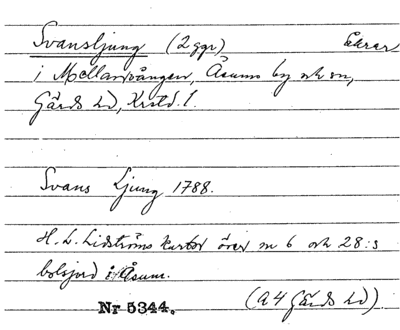 Svansljung (2 ggr) åkrar
i Mellanvången, Åsums by och sn,
Gärds hd, Kristd. l.
Svans Ljung 1788.
H. L. Lidströms kartor över nr 6 och 28:s
bolsjord i Åsum.
Nr 5344. (A 4 Gärds hd)